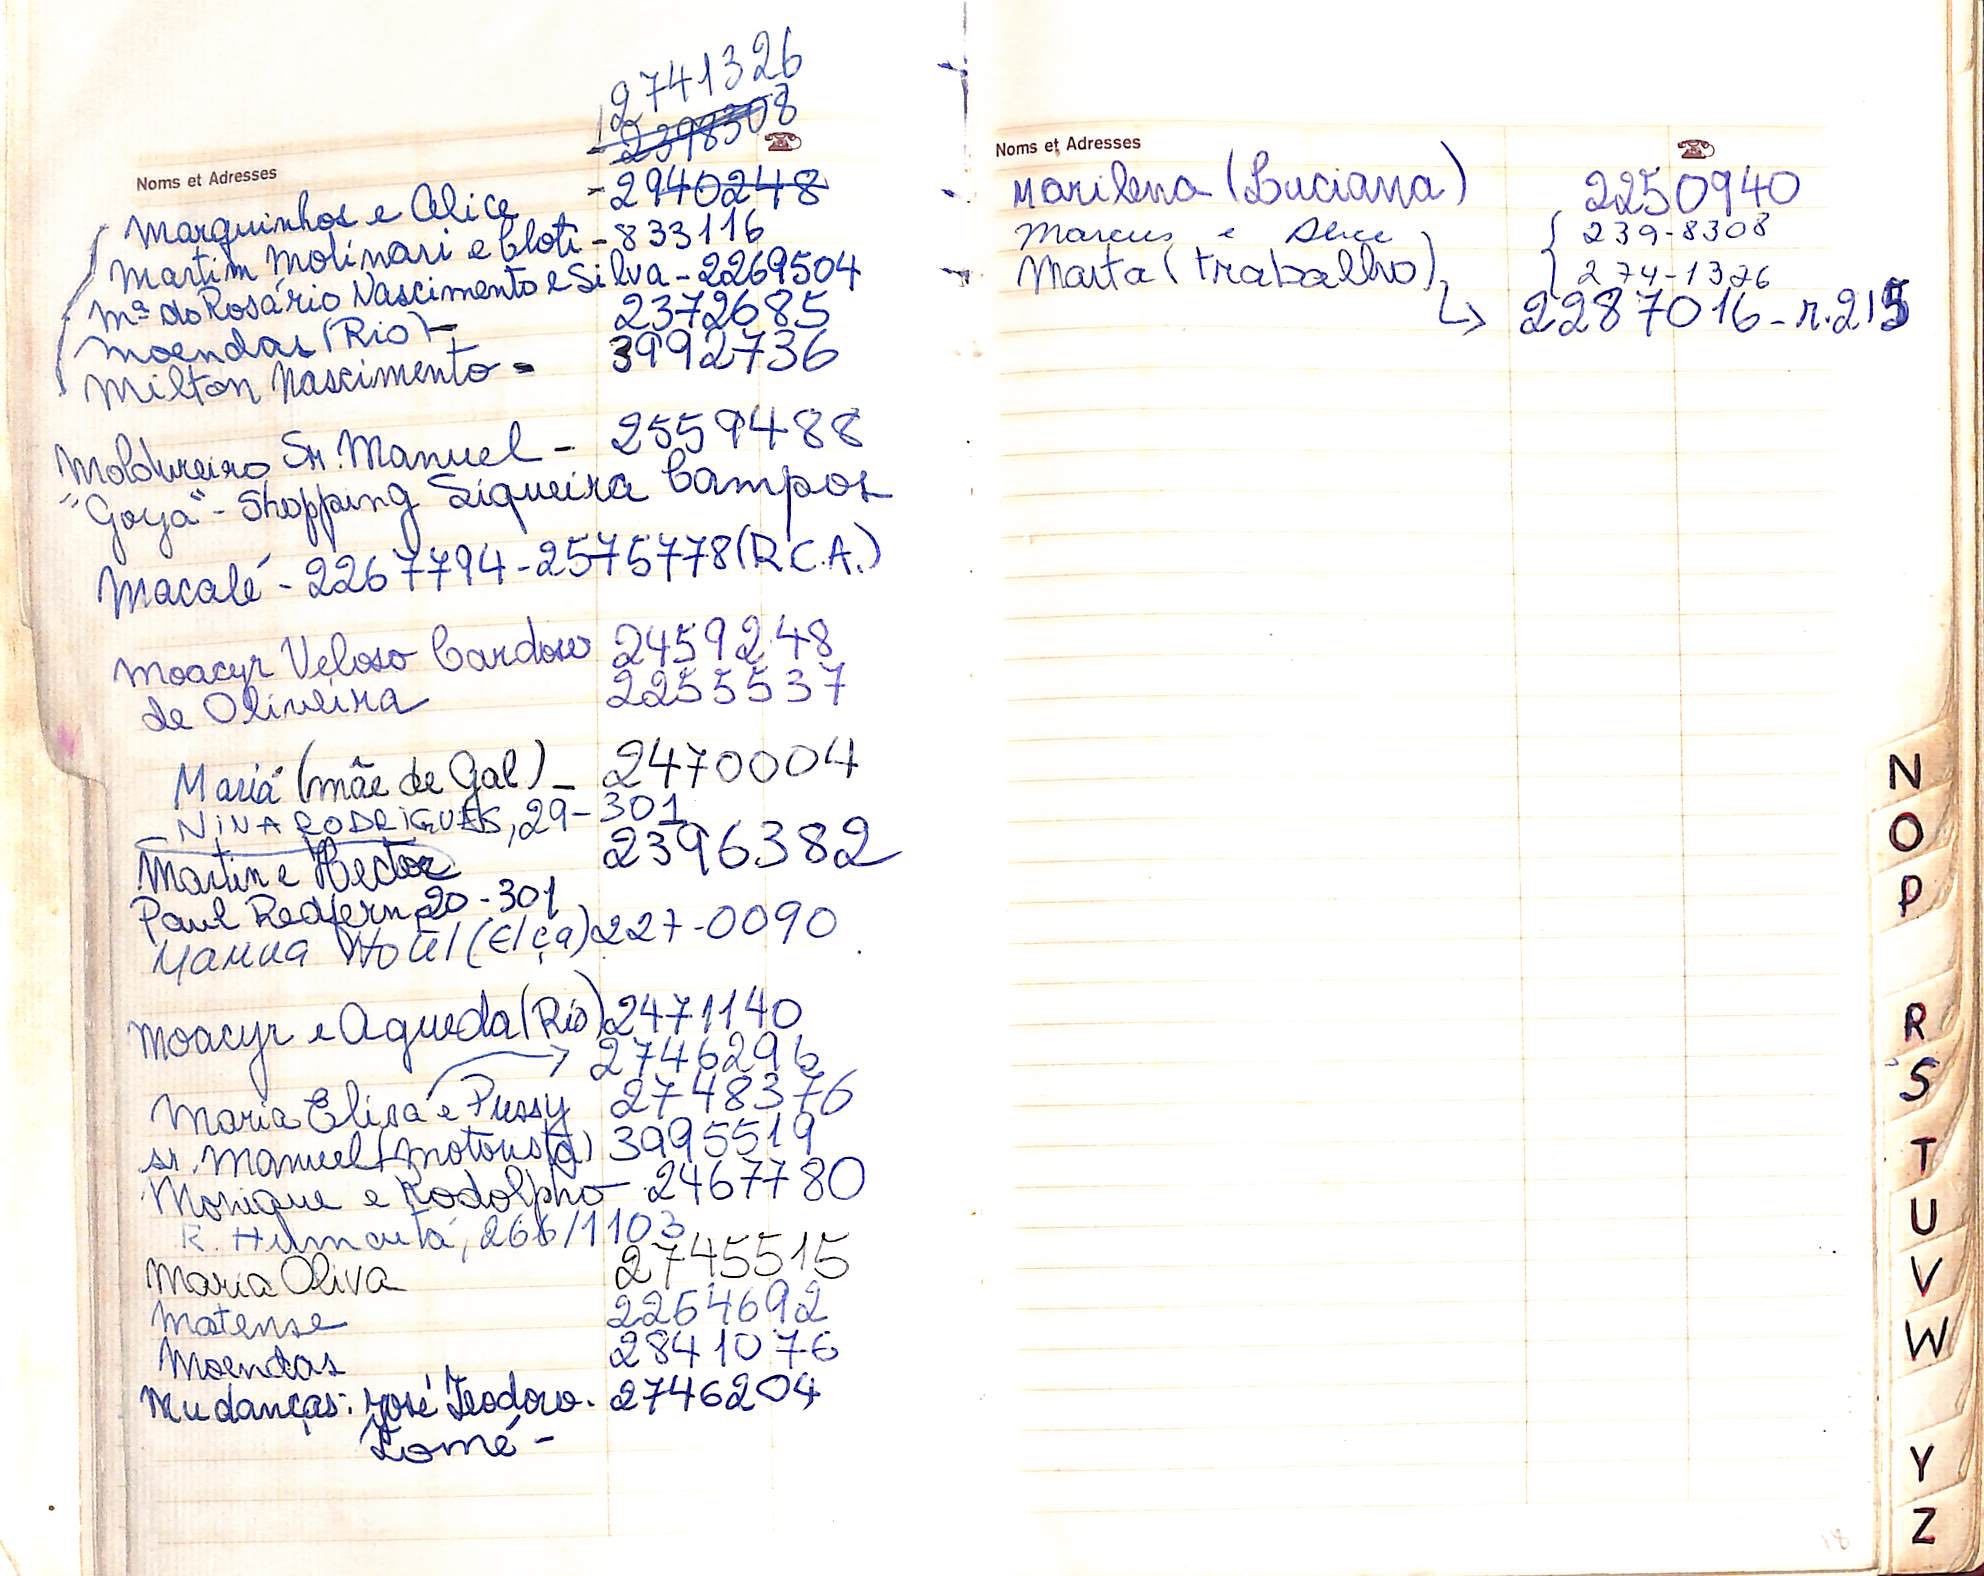 2741326
- 2398308
Noms et Adresses
Marquinhos e Alice - 2940248
Martim Molinari e Cloti - 833116
Mª do Rosário Nascimento e Silva - 2269504
Moendas (Rio) - 2372685
Milton Nascimento - 3992736
Moldureiro Sr. Manuel - 2559488
"Goya" - Shopping Siqueira Campos
Macalé - 2267794 - 2575778 (R.C.A.)
Moacyr Veloso Cardoso 2459248
de Oliveira 2255537
Mariá (mãe de Gal) - 2470004
NINA RODRIGUES, 29 - 301
Martin e Hector 2396382
Paul Redfern, 20 - 301
Hotel (Elça) 227-0090
Moacyr e Agueda (Rio) 2471140
→ 2746296
Maria Elisa e Pussy 2748376
Sr. Manuel (motorista) 3995519
Monique e Rodolpho - 2467780
R. Humaitá, 266/1103
Maria Oliva 2745515
Matense 2264692
Moendas 2841076
Mudanças: José Teodoro. 2746204
Lomé -
Noms et Adresses
Marilena (Luciana) 2250940
Marcus e Alice 239-8308
274-1326
Marta (trabalho)
↳ 2287016 - r. 215
N
O
P
R
S
T
U
V
W
Y
Z
18